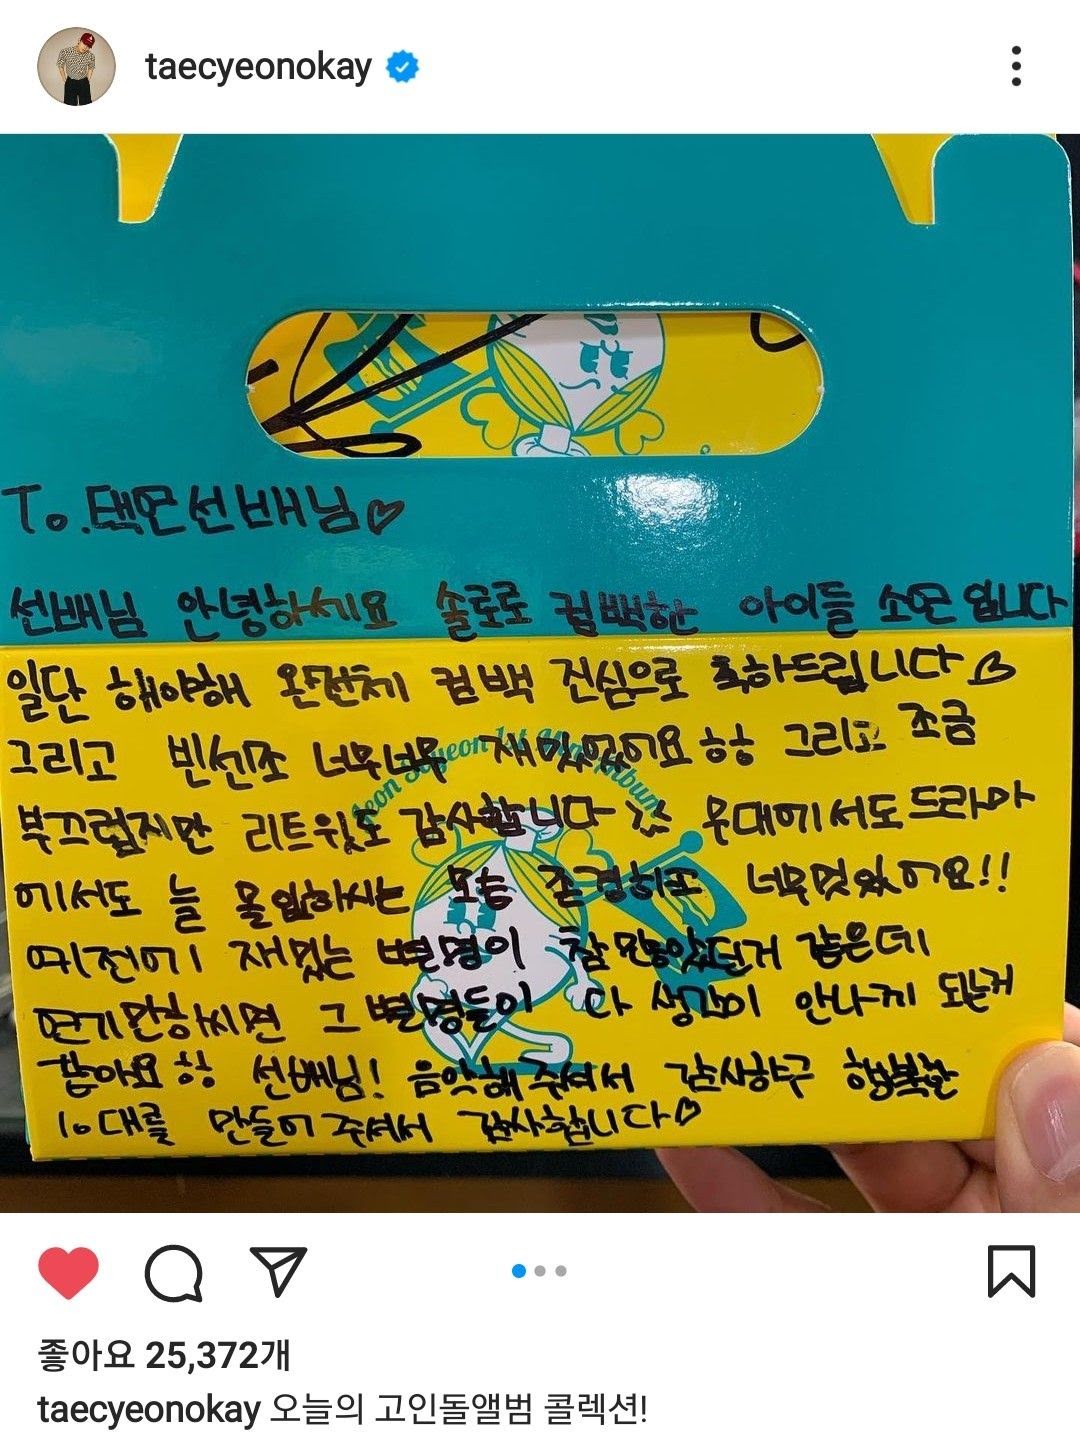 taecyeonokay
To.택연선배님♡
선배님 안녕하세요 솔로로 컴백한 아이들 소연입니다
일단 해야해 완전체 컴백 진심으로 축하드립니다♡
그리고 빈센조 너무너무 재밌었어요 ㅎㅎ 그리고 조금
부끄럽지만 리트윗도 감사합니다 ㅎㅎ 무대에서도 드라마
에서도 늘 몰입하시는 모습 존경하고 너무멋있어요!!
예전에 재밌는 별명이 참많았던거 같은데
연기만하시면 그 별명들이 다 생각이 안나게 되는거
같아요 ㅎㅎ 선배님! 음악해주셔서 감사하구 행복한
10대를 만들어주셔서 감사합니다♡
Jeon Soyeon 1st Mini Album
좋아요 25,372개
taecyeonokay 오늘의 고인돌앨범 콜렉션!